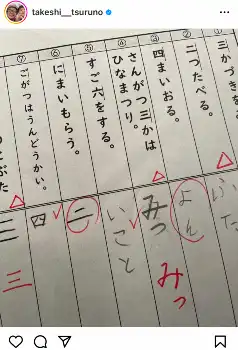 takeshi__tsuruno
①三かづきを
②二つたべる。
③四まいおる。
④さんがつ三かは
ひなまつり。
⑤すご六をする。
⑥にまいもらう。
⑦ごがつはうんどうかい。
ふた
よん
みつ
みっ
いこと
二
四
三
三